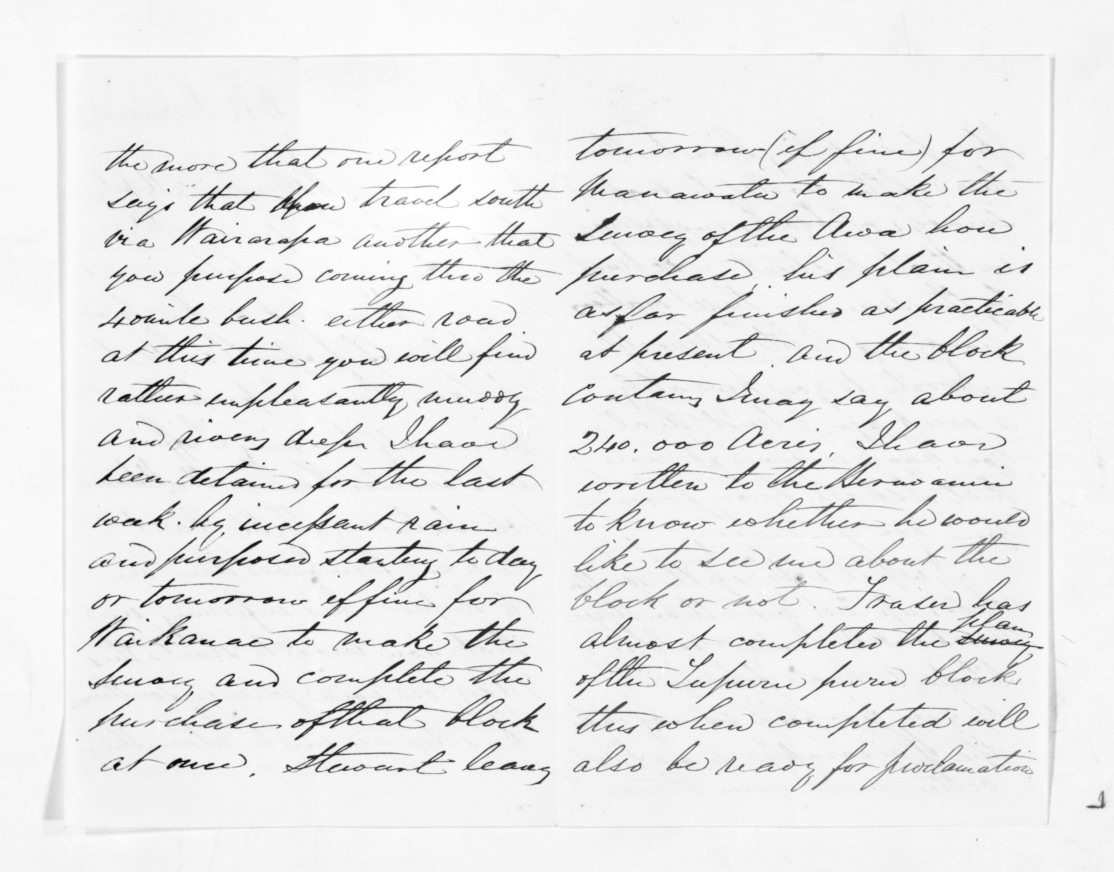 the more that one report
says that you travel south
via Wairarapa another that
you purpose coming thro the
40 mile bush. either road
at this time you will find
rather unpleasantly muddy
and rivers deep I have
been detained for the last
week. by incessant rain
and purposed starting to day
or tomorrow if fine for
Waikanae to make the
survey and complete the
purchase of that block
at once. Stewart leaves
tomorrow (if fine) for
Manawatu to make the
Survey of the Awa hou
purchase. his plan is
as far finished as practicable
at present and the block
contains I may say about
240.000 Acres, I have
written to the
to know whether he would
like to see me about the
block or not. Fraser has
almost completed the plan
of the Tupurupuru block
this when completed will
also be ready for proclamation